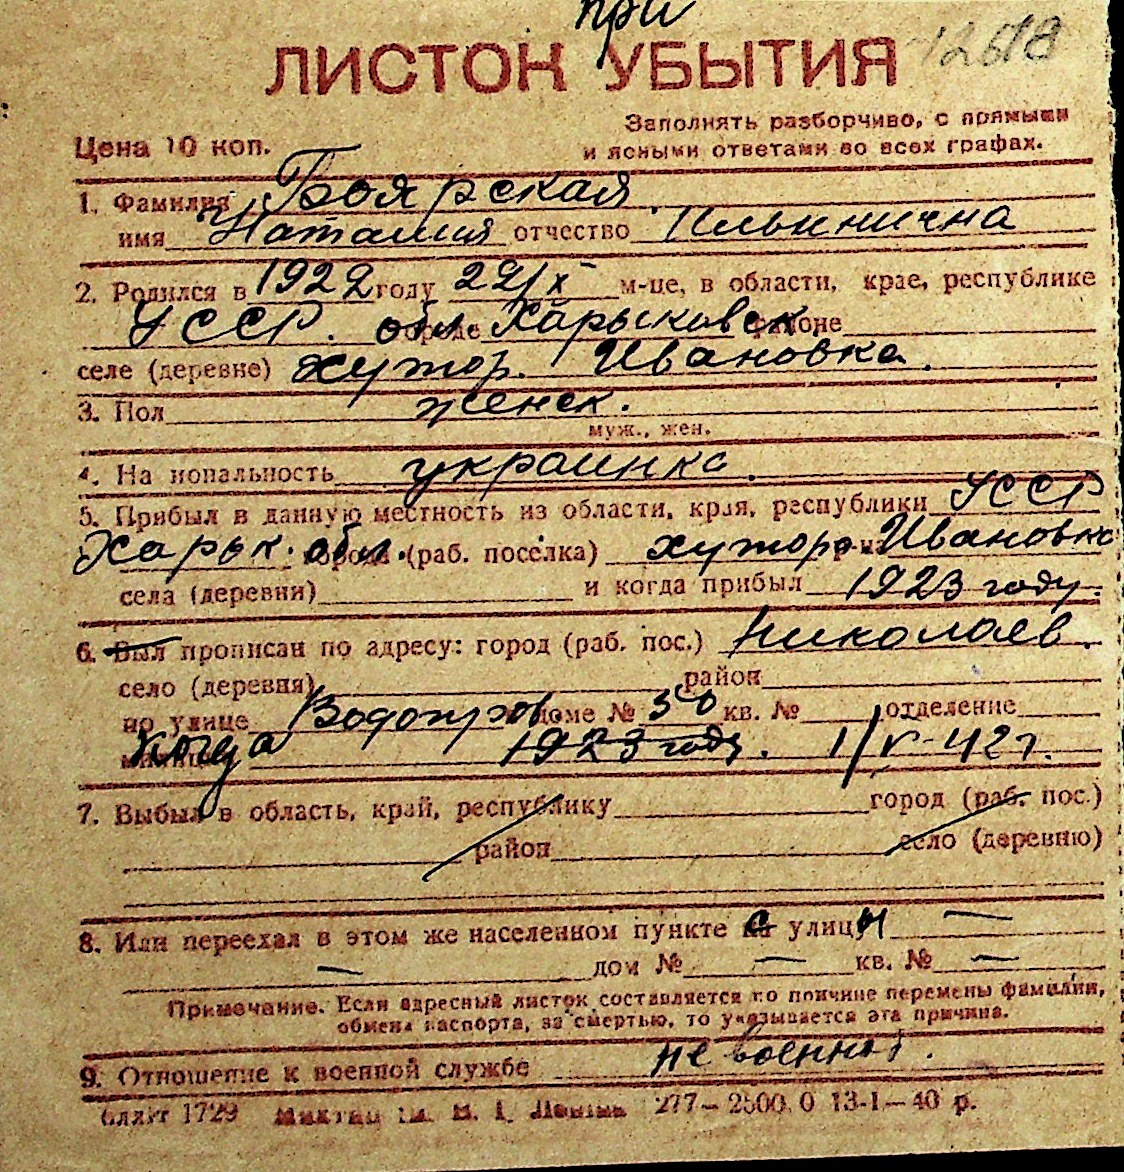 при
ЛИСТОК УБЫТИЯ 12618
Заполнять разборчиво, с прямыми
Цена 10 коп. и ясными ответами во всех графах.
1. Фамилия Боярская
имя Наталия отчество Ильинична
2. Родился в 1922 году 22/X м-це, в области, крае, республике
УССР. обл. городе Харьковск. районе
селе (деревне) хутор. Ивановка.
3. Пол женск.
муж., жен.
4. На иональность украинка.
5. Прибыл в данную местность из области, края, республики УССР
Харьк. обл. города (раб. поселка) хутора р-на Ивановка
села (деревни) и когда прибыл 1923 году.
6. Был прописан по адресу: город (раб. пос.) Николаев.
село (деревня) район
по улице Водопров доме № 50 кв. № отделение
когда 1923 году. 1/V-42г.
7. Выбыл в область, край, республику город (раб. пос.)
район село (деревню)
8. Или переехал в этом же населенном пункте с улицы —
— дом № — кв. № —
Примечание. Если адресный листок составляется по причине перемены фамилии,
обмена паспорта, за смертью, то указывается эта причина.
9. Отношение к военной службе не военног.
1729 277—2500.0 13-1—40 р.